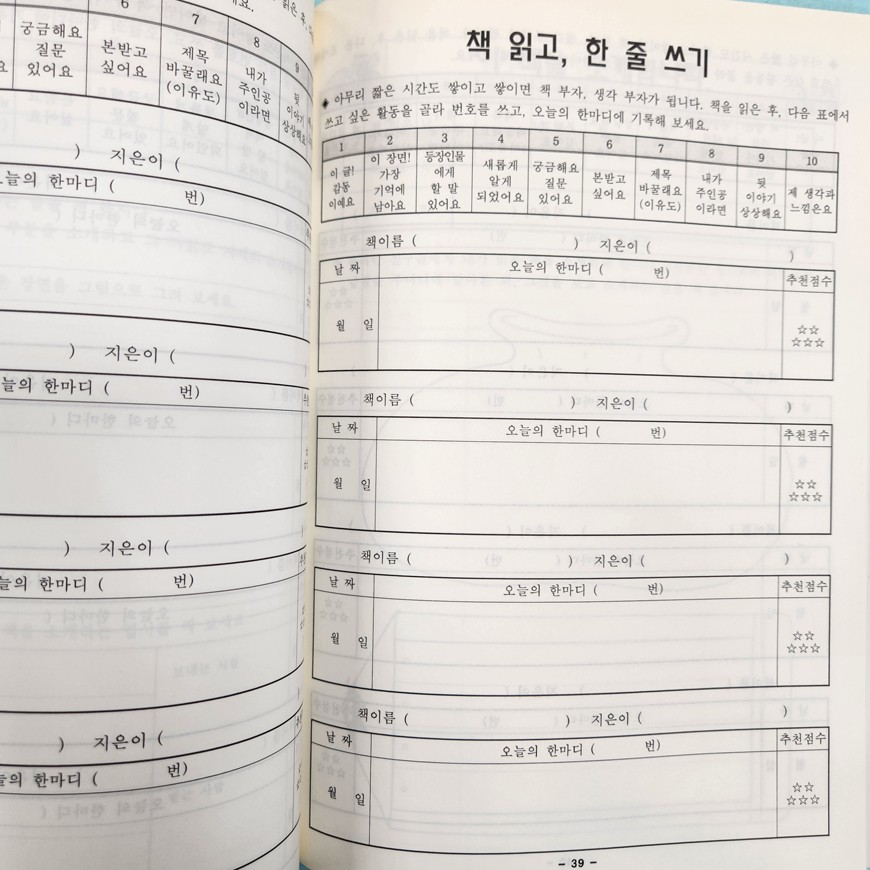 6
7
8
9
궁금해요
질문
있어요
본받고
싶어요
제목
바꿀래요
(이유도)
내가
주인공
이라면
뒷
이야기
상상해요
) 지은이 (
오늘의 한마디 ( 번)
) 지은이 (
늘의 한마디 ( 번)
) 지은이 (
늘의 한마디 ( 번)
) 지은이 (
늘의 한마디 ( 번)
책 읽고, 한 줄 쓰기
◆ 아무리 짧은 시간도 쌓이고 쌓이면 책 부자, 생각 부자가 됩니다. 책을 읽은 후, 다음 표에서
쓰고 싶은 활동을 골라 번호를 쓰고, 오늘의 한마디에 기록해 보세요.
1 2 3 4 5 6 7 8 9 10
이 글!
감동
이예요
이 장면!
가장
기억에
남아요
등장인물
에게
할 말
있어요
새롭게
알게
되었어요
궁금해요
질문
있어요
본받고
싶어요
제목
바꿀래요
(이유도)
내가
주인공
이라면
뒷
이야기
상상해요
제 생각과
느낌은요
책이름 ( ) 지은이 ( )
날 짜 오늘의 한마디 ( 번) 추천점수
월 일
☆☆
☆☆☆
책이름 ( ) 지은이 ( )
날 짜 오늘의 한마디 ( 번) 추천점수
월 일
☆☆
☆☆☆
책이름 ( ) 지은이 ( )
날 짜 오늘의 한마디 ( 번) 추천점수
월 일
☆☆
☆☆☆
책이름 ( ) 지은이 ( )
날 짜 오늘의 한마디 ( 번) 추천점수
월 일
☆☆
☆☆☆
- 39 -